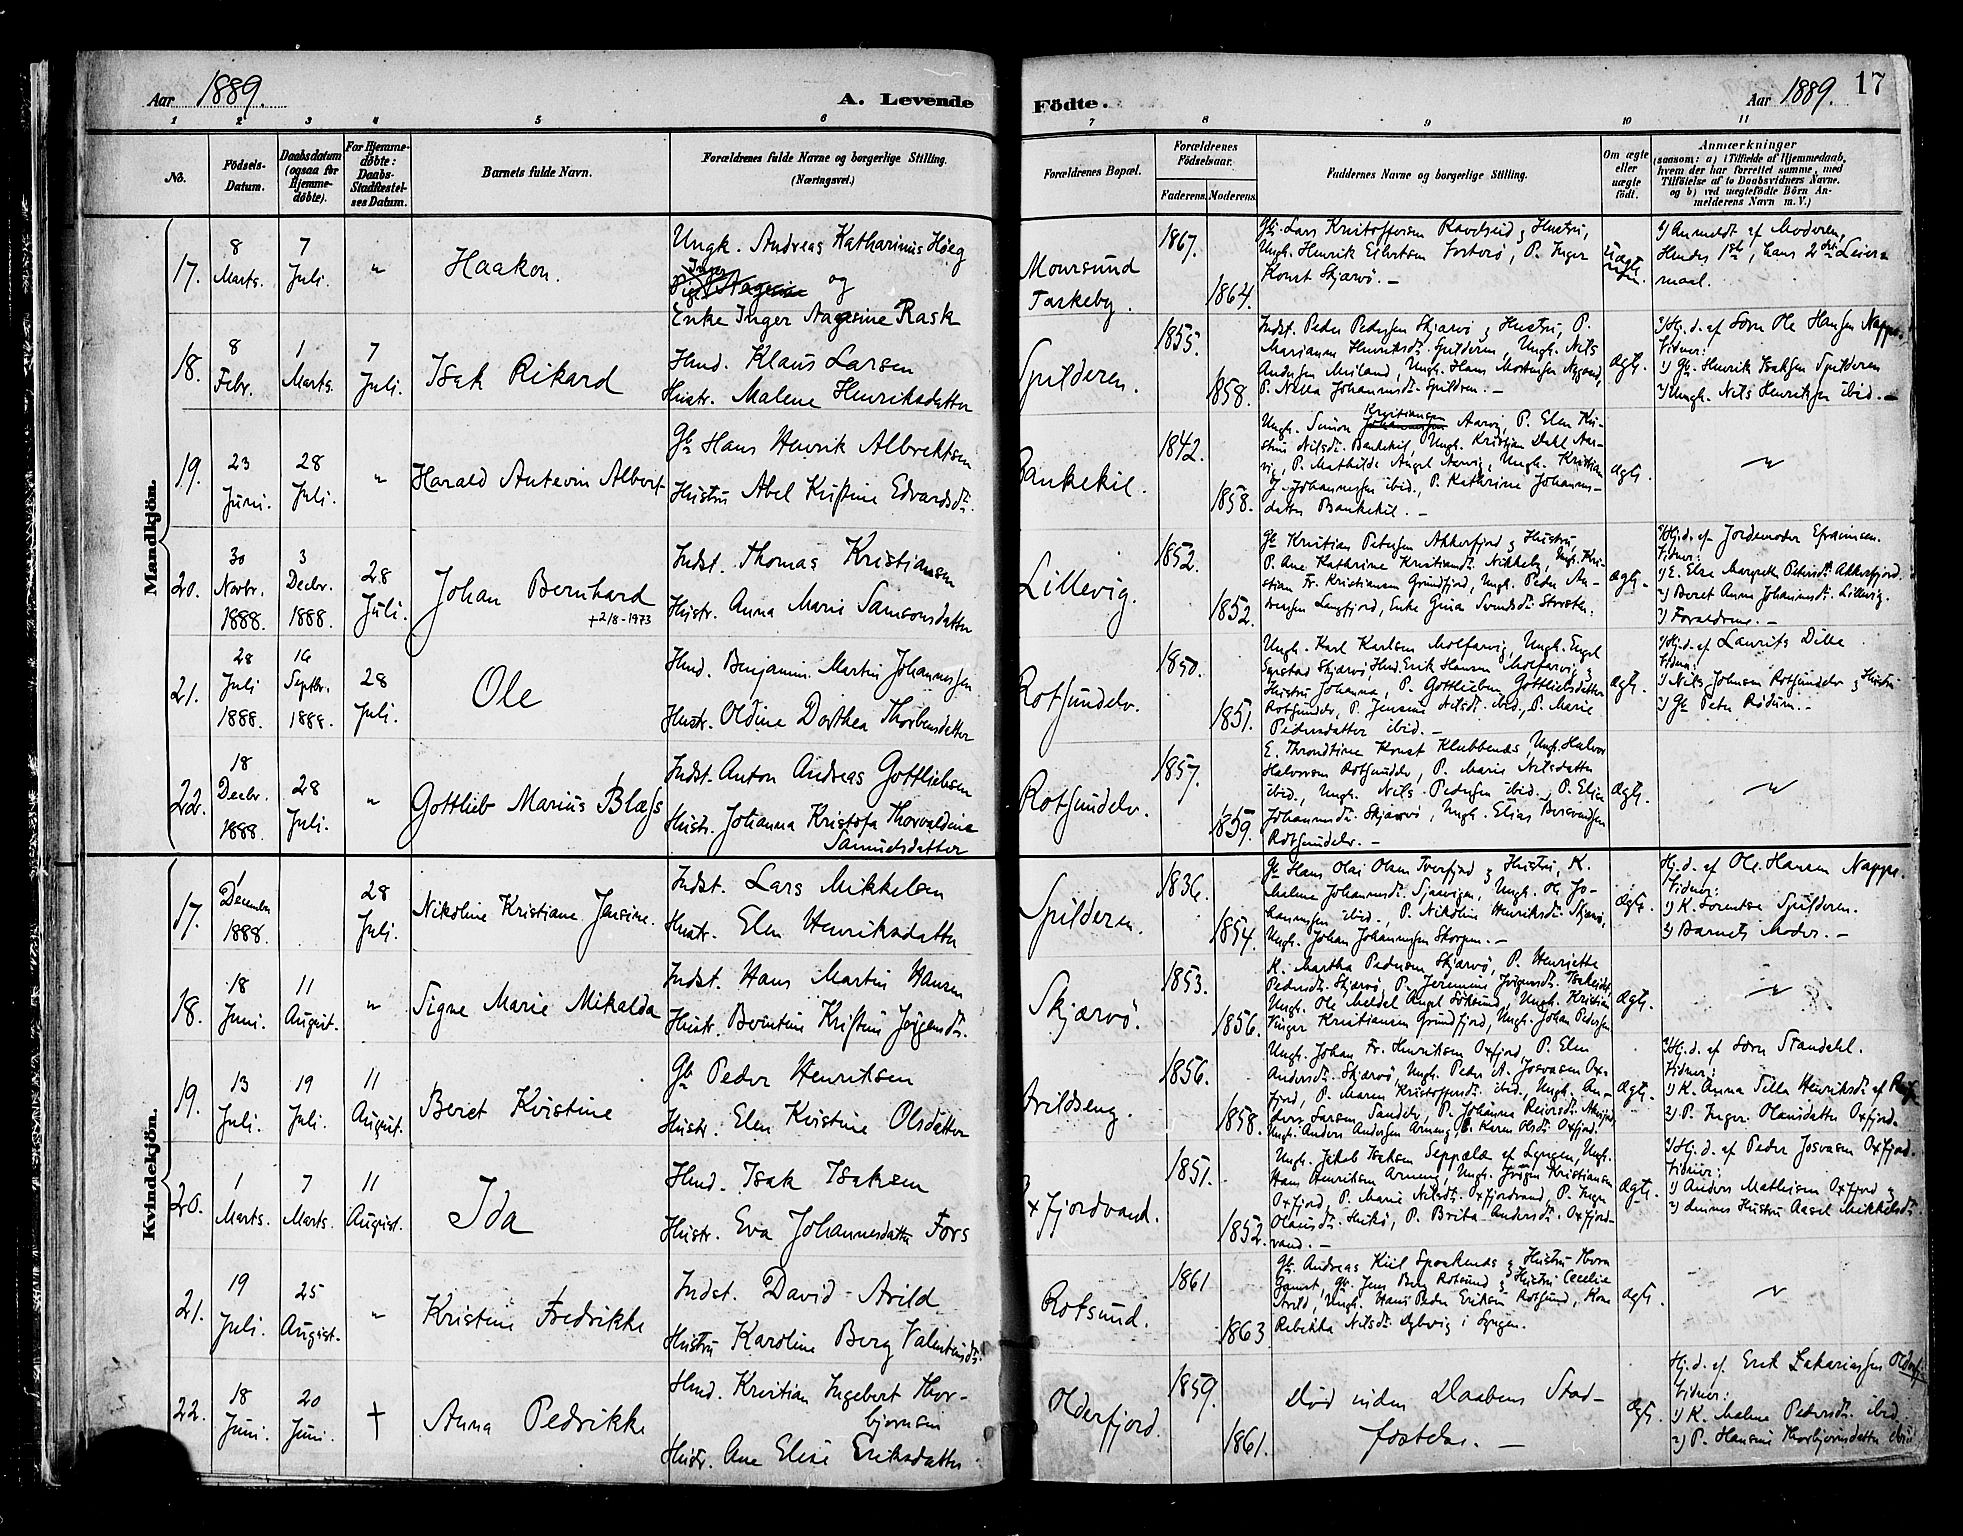 Aar 1889.
A. Levende
Födte.
Aar 1889.
17
1 2 3 4 5 6
7 8 9 10 11
No.
Födsels-
Datum.
Daabsdatum
(ogsaa for
Hjemme-
døbte).
For Hjemme-
døbte:
Daabs-
Stadfæstel-
ses Datum.
Barnets fulde Navn.
Forældrenes fulde Navne og borgerlige Stilling.
(Næringsvei.)
Forældrenes Bopæl.
Forældrenes
Födselsaar.
Faderens. Moderens.
Faddernes Navne og borgerlige Stilling.
Om ægte
eller
uægte
født.
Anmærkninger
(saasom: a) i Tilfælde af Hjemmedaab,
hvem der har forrettet samme, med
Tilföielse af to Daabsvidners Navne.
og b) ved uegtefödte Börn An-
melderens Navn m. V.)
Mandkjön.
17.
8
Marts.
7
Juli.
"
Haakon.
Ungk. Andreas Katharinus Høeg
og
Enke Inger Aagesine Rask
Moursund
Taskeby.
1867.
1864.
Gb. Lars Kristoffersen Ravelseid & Hustru,
Ungk. Henrik Eilertsen Tortorö, P. Inger
Konst Skjærvö. —
1) Anmeldt af Moderen,
Hendes 1ste, hans 2det Leiers-
maal.
18.
8
Febr.
1
Marts.
7
Juli.
Isak Rikard
Hmd. Klaus Larsen
Hustr. Malene Henriksdatter
Spilderen.
1855.
1858.
Indst. Peder Pedersen Skjærvö & Hustru, P.
Marianne Henriksdt. Spilderen, Ungk. Nils
Andersen Meiland, Ungk. Hans Mortensen Nygaard,
P. Nella Johannesdt. Spildren. —
ægte.
1) Hj. d. af Sörn Ole Hansen Nappe.
Vidner:
1) Gb. Henrik Isaksen Spilderen
2) Ungk. Nils Henriksen ibid. —
19.
23
Juni.
28
Juli.
"
Harald Antevin Albert
Gb. Hans Henrik Albrektsen
Hustru Abel Kristine Edvardsdt.
Bankekil.
1842.
1858.
Ungk. Simon Kristiansen Aarvig, P. Elen Kri-
stine Nilsdt. Bankekil, Ungk. Kristian Dahl Aar-
vig, P. Mathilde Angel Aarvig, Ungk. Kristian
J. Johannesen ibid., P. Kathrine Johannes-
datter Bankekil. —
ægte.
20.
30
Novbr.
1888.
3
Decbr.
1888.
28
Juli.
Johan Bernhard
+2/8-1973
Indst. Thomas Kristiansen
Hustr. Anna Marie Samsonsdatter
Lillevig.
1852.
1852.
Gb. Kristian Petersen Akkerfjord & Hustru,
P. Ane Kathrine Kristiansdt. Nikkeby, Ungk. Kri-
stian Fr. Kristiansen Grundfjord, Ungk. Peder An-
dreasen Langfjord, Enke Gina Svendsdt.
ægte.
1) Hj. d. af Jordemoder Efraimsen.
Vidner:
1) E. Else Margreth Petersdt. Akkerfjord
2) Beret Anna Johannesdt. Lillevig.
3) Forældrene. —
21.
28
Juli
1888.
16
Septbr.
1888.
28
Juli.
Ole
Hmd. Benjamin Martin Johannessen
Hustr. Oldine Dorthea Thorbensdatter
Rotsundelv.
1850.
1851.
Ungk. Karl Karlsen Molfarvig, Ungk. Engel
Skjærvö, Hmd. Erik Hansen Molfarvig &
Hustru Johanna, P. Gottlieba Gottliebsdatter
Rotsundelv, P. Jensine Nilsdt. ibid., P. Marie
Pedersdatter ibid. —
ægte.
1) Hj. d. af Laurits Dilla
Vidner:
1) Nils Johnsen Rotsundelv & Hustru
2) Gb. Peter Rödum. —
22.
18
Decbr.
1888.
28
Juli.
"
Gottlieb Marius Blæss
Indst. Anton Andreas Gottliebsen
Hustr. Johanna Kristofa Thorvaldine
Samuelsdatter
Rotsundelv.
1857.
1859.
E. Throndtine Konst Klubbenæs, Ungk. Halvor
Halvorsen Rotsundelv, P. Marie Nilsdatter
ibid., Ungk. Nils Pedersen ibid., P. Elise
Johannesdt. Skjærvö, Ungk. Elias
Rotsundelv. —
ægte.
Kvindekjön.
17.
1
December
1888.
28
Juli.
Nikoline Kristiane Jansine.
Indst. Lars Mikkelsen
Hustr. Elen Henriksdatter
Spilderen.
1836.
1854.
Gb. Hans Olai Olsen Tverfjord & Hustru, K.
Malene Johannesdt., Ungk. Ol. Jo-
hannesen ibid., P. Nikoline Henriksdt. Skjærvö,
Ungk. Johan Johannesen Skorpen. —
ægte.
Hj. d. af Ole Hansen Nappe.
Vidner:
1) K. Lorentse Spilderen.
2) Barnets Moder. —
18.
18
Juni.
11
August.
"
Signe Marie Mikalda
Indst. Hans Martin Hansen
Hustr. Berntine Kristine Jørgensdt.
Skjærvö.
1853.
1856.
K. Martha Pedersen Skjærvö, P. Henriette
Pedersdt. Skjærvö, P. Jeremine Jörgensdt.
Ungk. Ole Meldel Angel, Ungk. Kristian
Vinger Kristiansen Grundfjord, Ungk. Johan Pedersen
ægte.
19.
13
Juli.
19
Juli.
11
August.
Beret Kristine
Gb. Peder Henriksen
Hustr. Elen Kristine Olsdatter
Arildseng.
1856.
1858.
Ungk. Johan Fr. Henriksen Oxfjord, P. Elen
Andersdt. Skjærvö, Ungk. Peder A. Josvasen Ox-
fjord, P. Maren Kristoffersdt. ibid., Ungk. An-
ders Larsen Sandelv, P. Johanna
Ungk. Anders Andersen, P. Karen Olsdt. Oxfjord.
ægte.
1) Hj. d. af Sörn Standahl.
Vidner:
1) K. Anna Silla Henriksdt. af
2) P. Inger Olausdatter Oxfjord.
20.
1
Marts.
7
Marts.
11
August.
Ida
Hmd. Isak Isaksen
Hustr. Eva Johannesdatter Fors
Oxfjordvand.
1851.
1852.
Ungk. Jakob Isaksen Seppälä af Lyngen, Ungk.
Hans Henriksen, Ungk. Jörgen Kristiansen
Oxfjord, P. Marie Nilsdt. Oxfjordvand, P. Inger
Olausdt., P. Brita Andersdt. Oxfjord-
vand. —
ægte.
1) Hj. d. af Peder Josvasen Oxfjord.
Vidner:
1) Anders Mathisen Oxfjord &
2) dennes Hustru Aasel Mikkelsdt.
21.
19
Juli.
25
August.
"
Kristine Fredrikke
Indst. David Arild
Hustru Karoline Berg Valentinsdt.
Rotsund.
1861
1863
Gb. Andreas Kiil Spaakenæs & Hustru Thora
Gamst, Gb. Jens Berg Rotsund & Hustru Cecelie
Arild, Ungk. Hans Peder Eriksen Rotsund, Kone
Rebekka Nilsdt. Dybvig i Lyngen.
ægte.
22.
18
Juni.
20
Juni.
†
Anna Pedrikke
Hmd. Kristian Ingebert Thor-
bjornsen
Hustr. Ane Elise Eriksdatter
Olderfjord.
1859.
1861.
Död inden Daabens Stad-
fæstelse. —
ægte.
Hj. d. af Erik Zakariassen Olderfj.
Vidner:
1) K. Malene Pedersdt. ibid.
2) P. Hansine Thorbjornsdatter ibid.